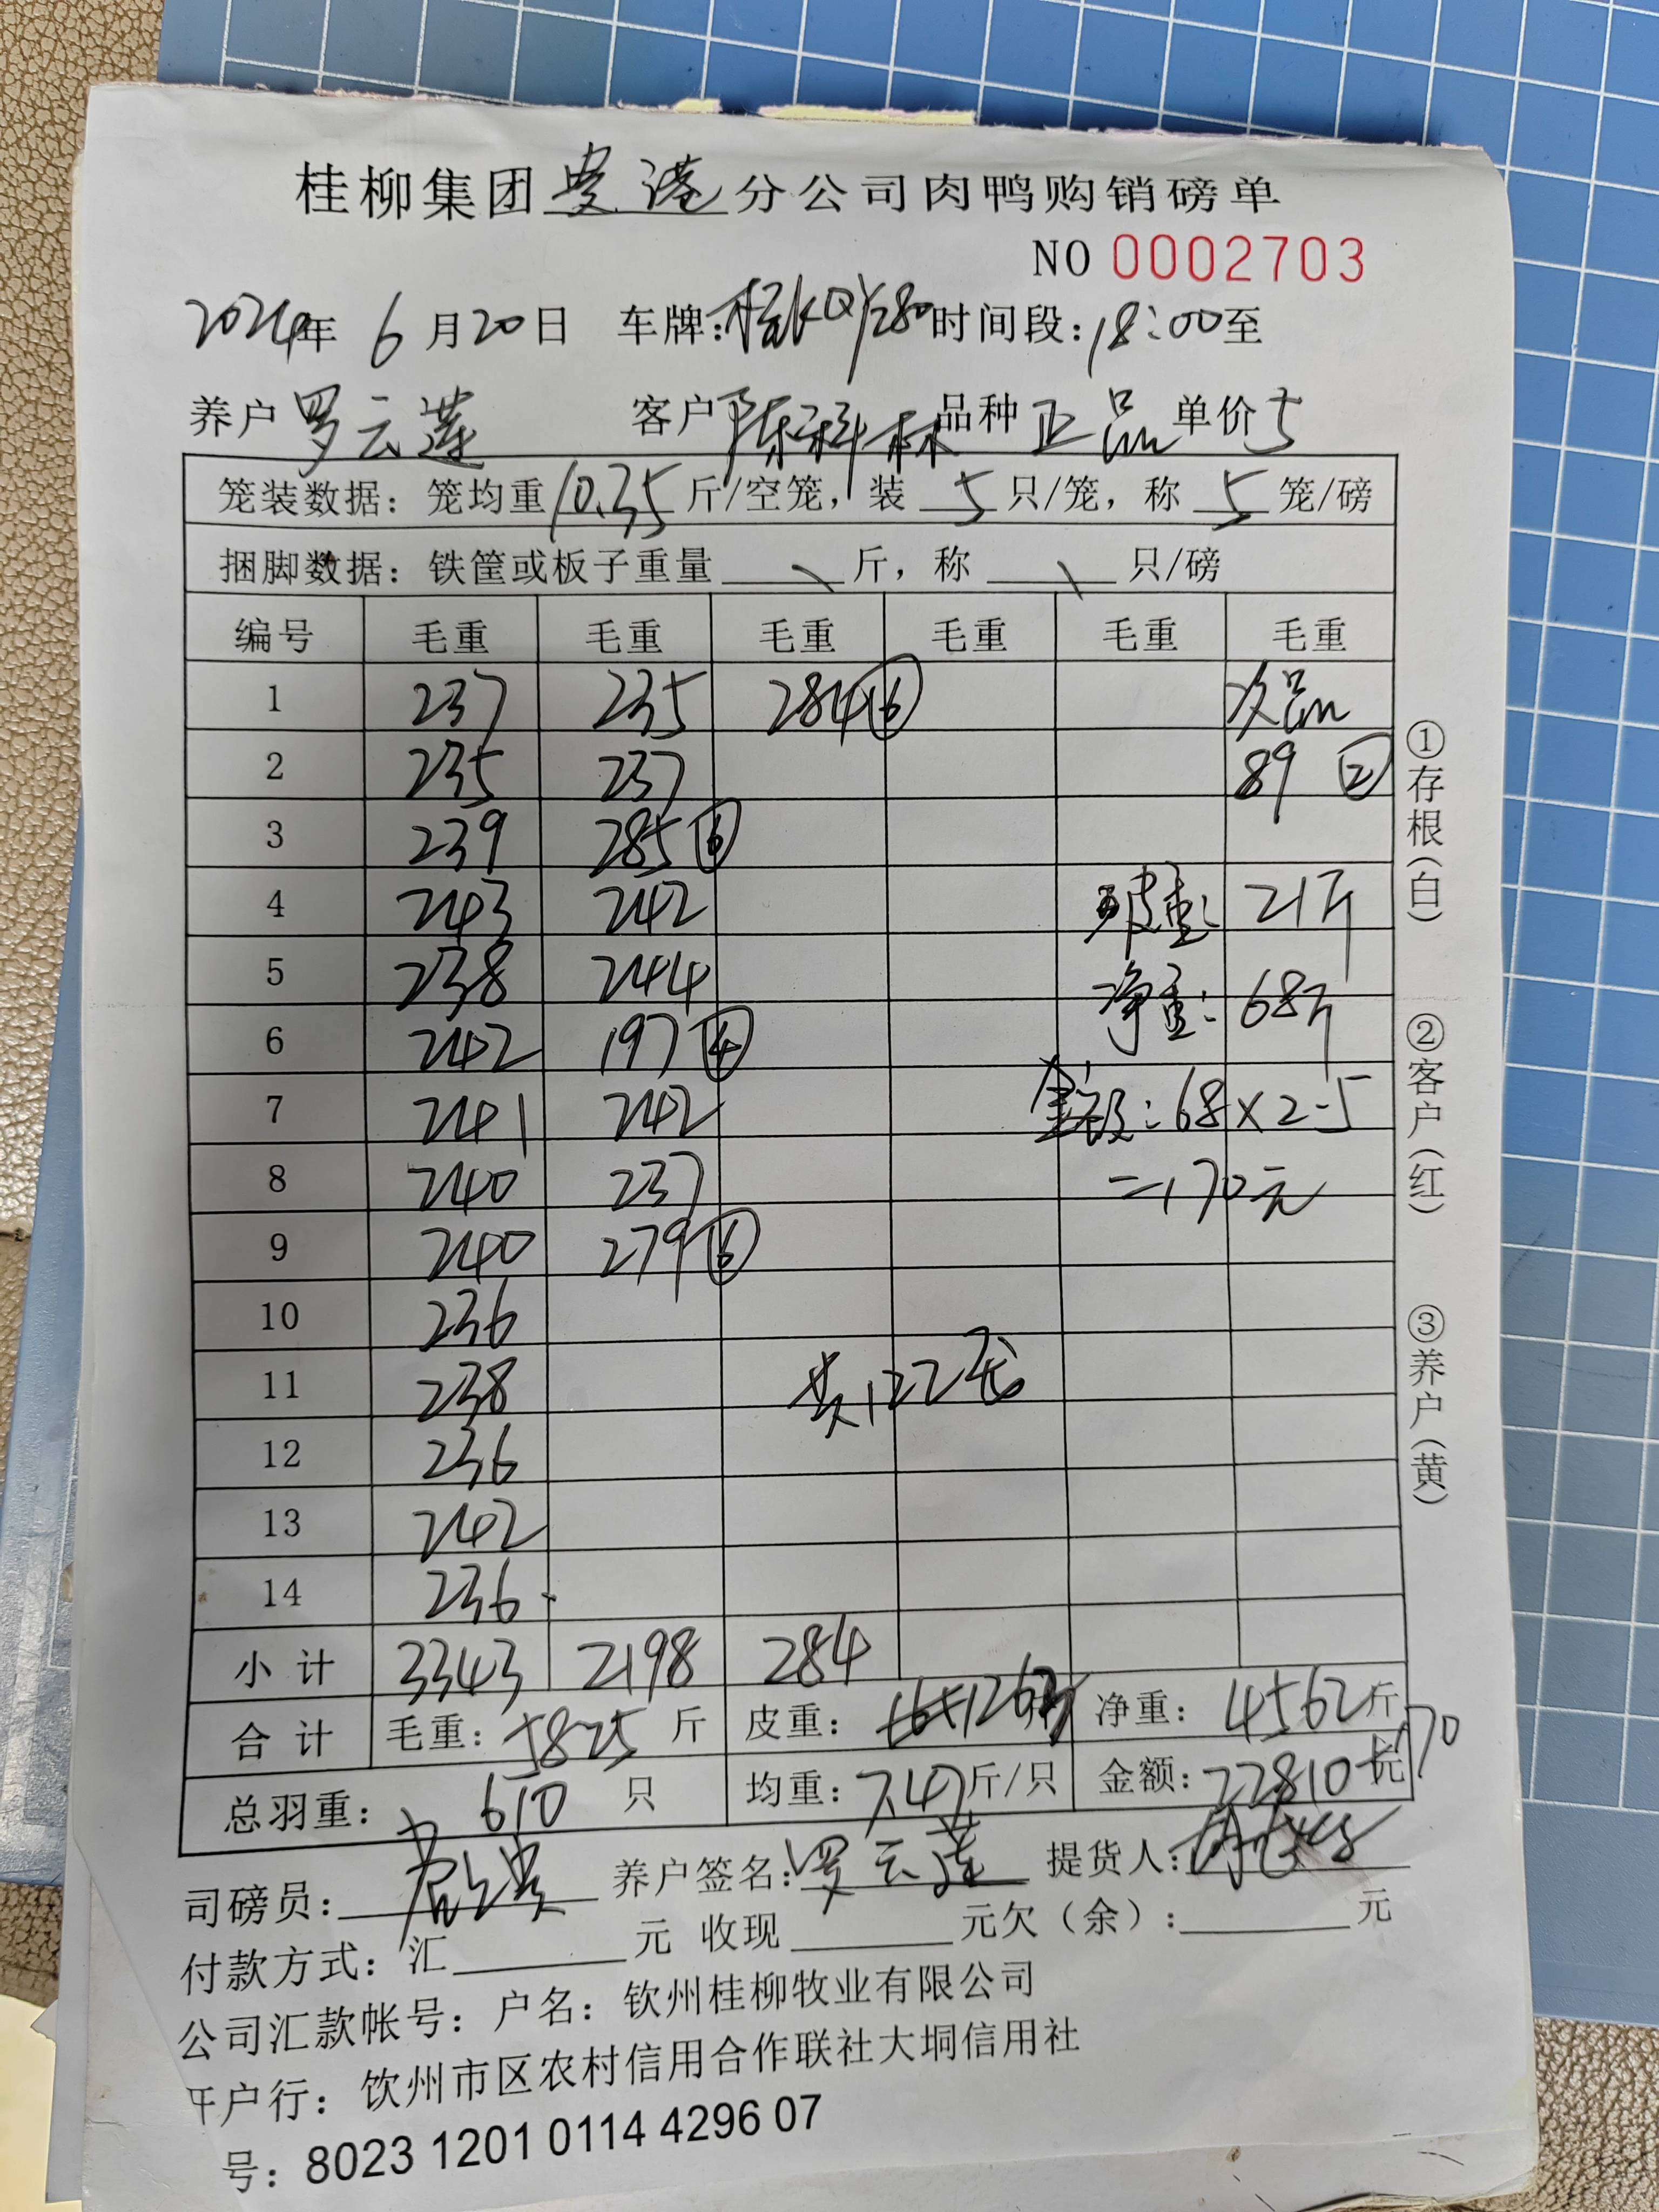 桂柳集团贵港分公司肉鸭购销磅单
NO 0002703
2024年 6月20日 车牌:桂KQY280 时间段:18:00至
养户 罗云莲 客户 陈科林 品种 正品 单价 5
笼装数据: 笼均重10.35斤/空笼, 装 5 只/笼, 称 5 笼/磅
捆脚数据: 铁筐或板子重量 \ 斤, 称 \ 只/磅
编号 毛重 毛重 毛重 毛重 毛重 毛重
1 237 235 284⑥ 次品
2 235 237 89 ②
3 239 285⑥
4 243 242 皮重: 21斤
5 238 244 净重: 68斤
6 242 197④
7 241 242 金额: 68×2.5
8 240 237 =170元
9 240 279⑥
10 236
11 238 共122笼
12 236
13 242
14 236
小计 3343 2198 284
合计 毛重: 5825 斤 皮重: 1263斤 净重: 4562斤
总羽重: 610 只 均重: 7.47斤/只 金额: 22810元+170
司磅员: 养户签名: 罗云莲 提货人:
付款方式: 汇 元 收现 元欠(余): 元
公司汇款帐号: 户名: 钦州桂柳牧业有限公司
开户行: 钦州市区农村信用合作联社大垌信用社
号: 8023 1201 0114 4296 07
①存根(白) ②客户(红) ③养户(黄)